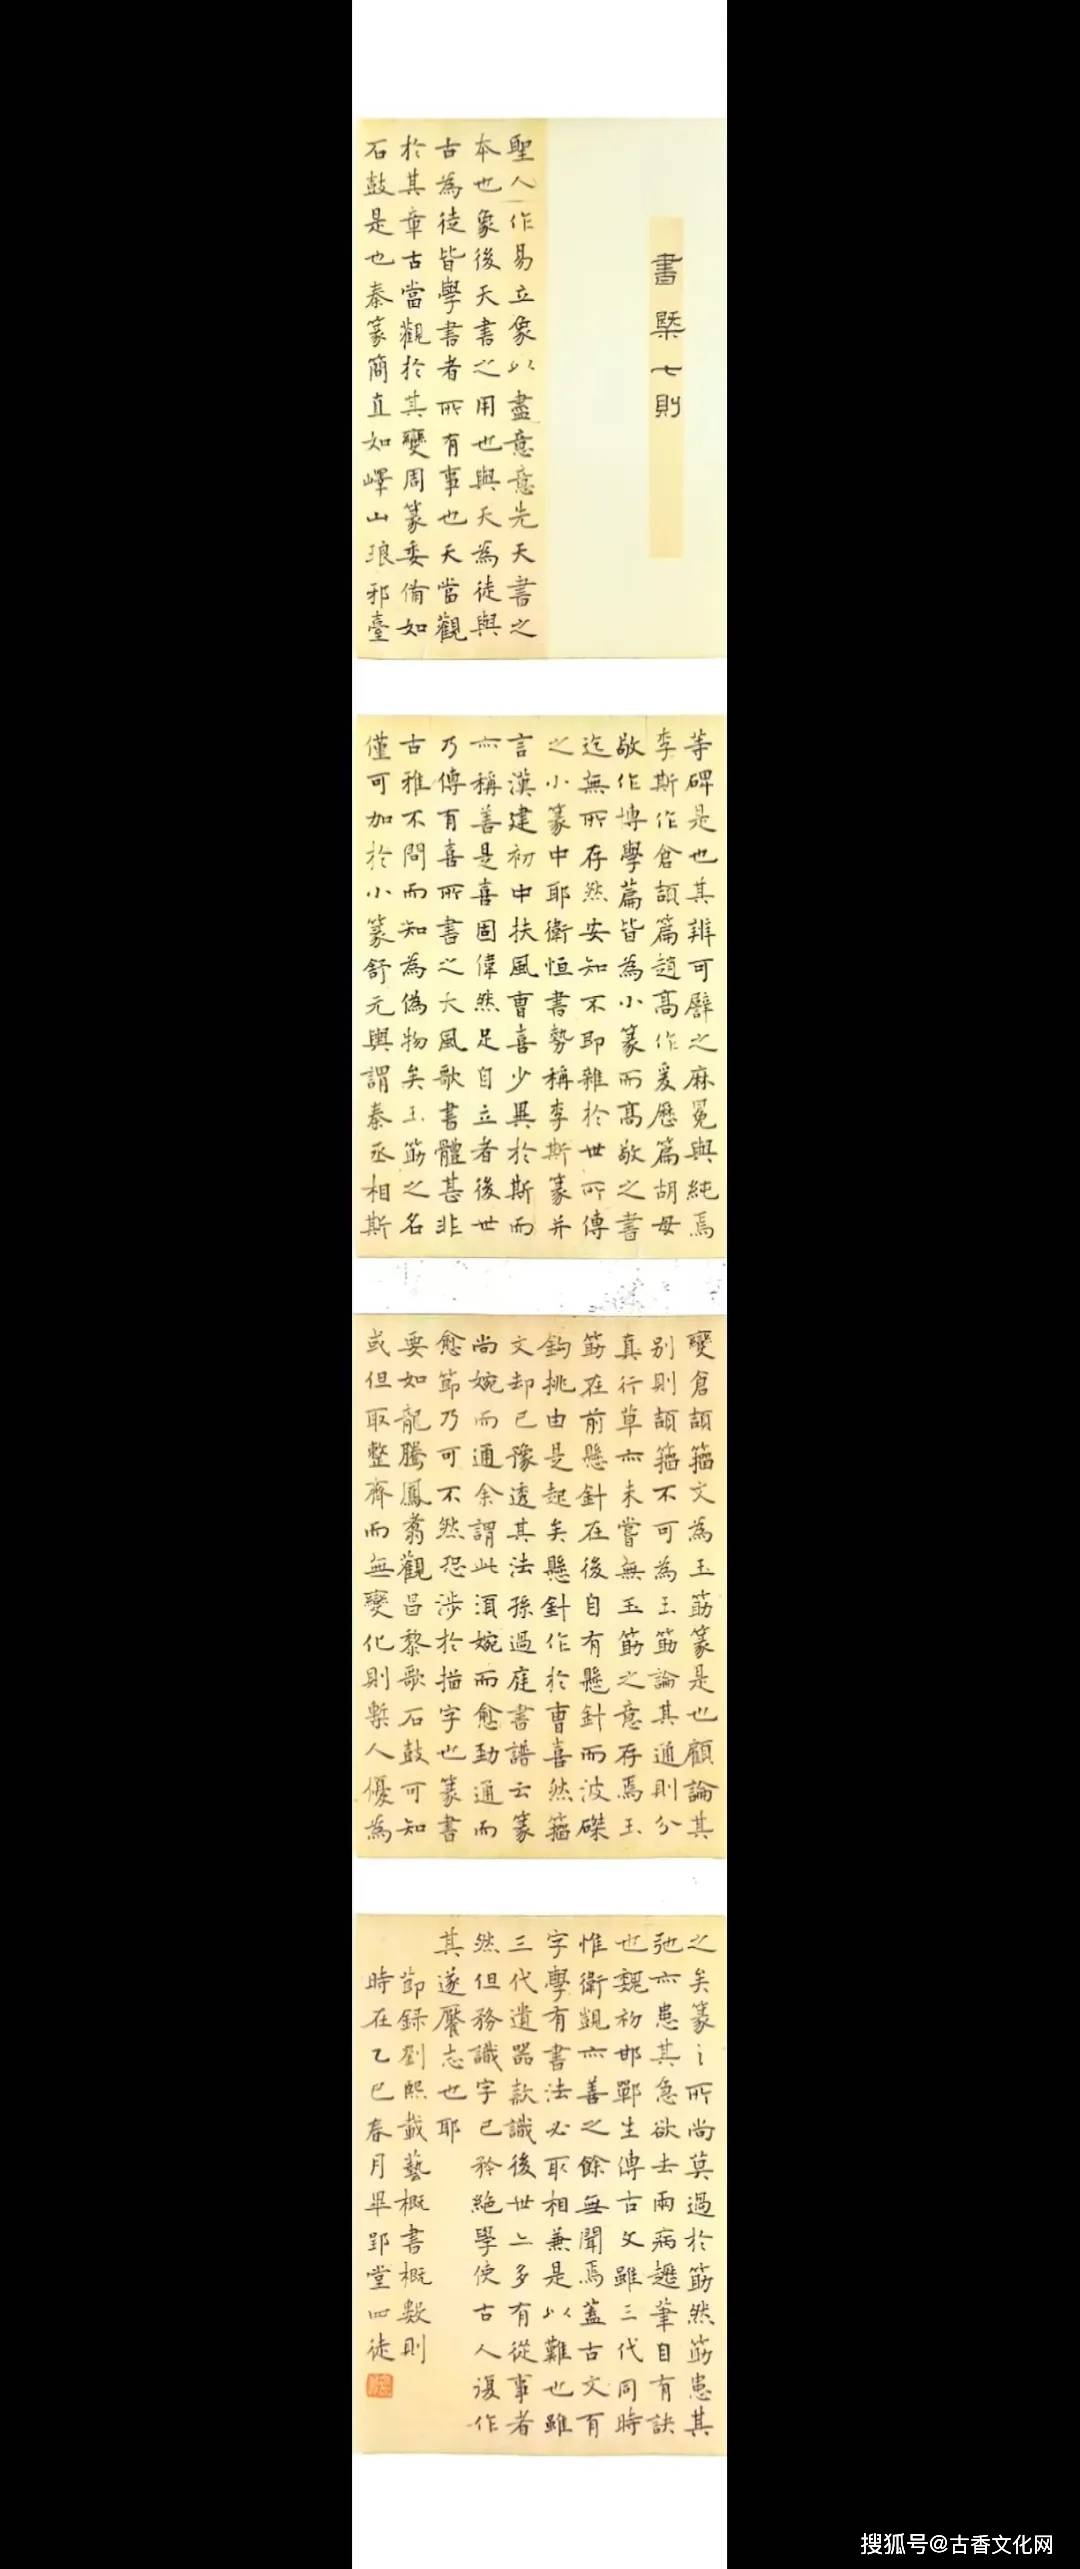 書槩七則
聖人作易立象以盡意意先天書之
本也象後天書之用也與天為徒與
古為徒皆學書者所有事也天當觀
於其章古當觀於其變周篆委備如
石鼓是也秦篆簡直如嶧山琅邪臺
等碑是也其辨可譬之麻冕與純焉
李斯作倉頡篇趙高作爰歷篇胡毋
敬作博學篇皆為小篆而高敬之書
迄無所存然安知不即雜於世所傳
之小篆中耶衛恒書勢稱李斯篆并
言漢建初中扶風曹喜少異於斯而
亦稱善是喜固偉然足自立者後世
乃傳有喜所書之大風歌書體甚非
古雅不問而知為偽物矣玉筯之名
僅可加於小篆舒元輿謂秦丞相斯
變倉頡籀文為玉筯篆是也顧論其
別則頡籀不可為玉筯論其通則分
真行草亦未嘗無玉筯之意存焉玉
筯在前懸針在後自有懸針而波磔
鉤挑由是起矣懸針作於曹喜然籀
文却已豫透其法孫過庭書譜云篆
尚婉而通余謂此須婉而愈勁通而
愈節乃可不然恐涉於描字也篆書
要如龍騰鳳翥觀昌黎歌石鼓可知
或但取整齊而無變化則槧人優為
之矣篆之所尚莫過於筯然筯患其
弛亦患其急欲去兩病趯筆自有訣
也魏初邯鄲生傳古文雖三代同時
惟衛覬亦善之餘無聞焉蓋古文有
字學有書法必取相兼是以難也雖
三代遺器款識後世多有從事者
然但務識字已矜絕學使古人復作
其遂饜志也耶
節錄劉熙載藝概書概數則
時在乙巳春月畢郢堂四徒
搜狐号@古香文化网